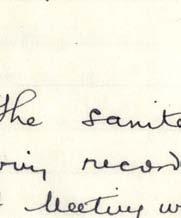 The sanit
ring record
Meeting w